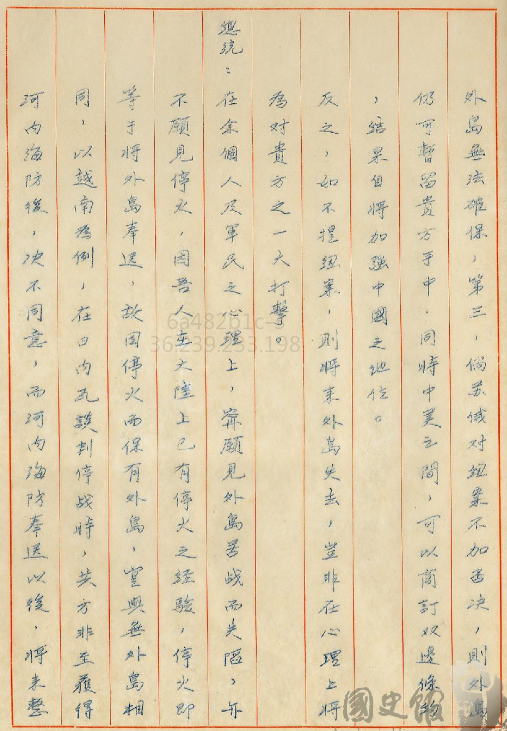 外島無法確保，第三，倘苏俄对紐案不加否决，則外島
仍可暫留貴方手中．同時中美之間，可以商訂双邊條約
，結果自將加强中國之地位。
反之，如不提紐案，則將来外島失去，豈非在心理上將
為对貴方之一大打擊。
總統：在余個人及軍民之心理上，寧願見外島苦战而失陷，亦
不願見停火，因吾人在大陸上已有停火之經驗，停火即
等于將外島奉送，故因停火而保有外島，實與無外島相
同，以越南為例，在日内瓦談判停战時，共方非至獲得
河内海防後，决不同意，而河内海防奉送以後，將来整
6a48261c-
36.239.233.198
國史館